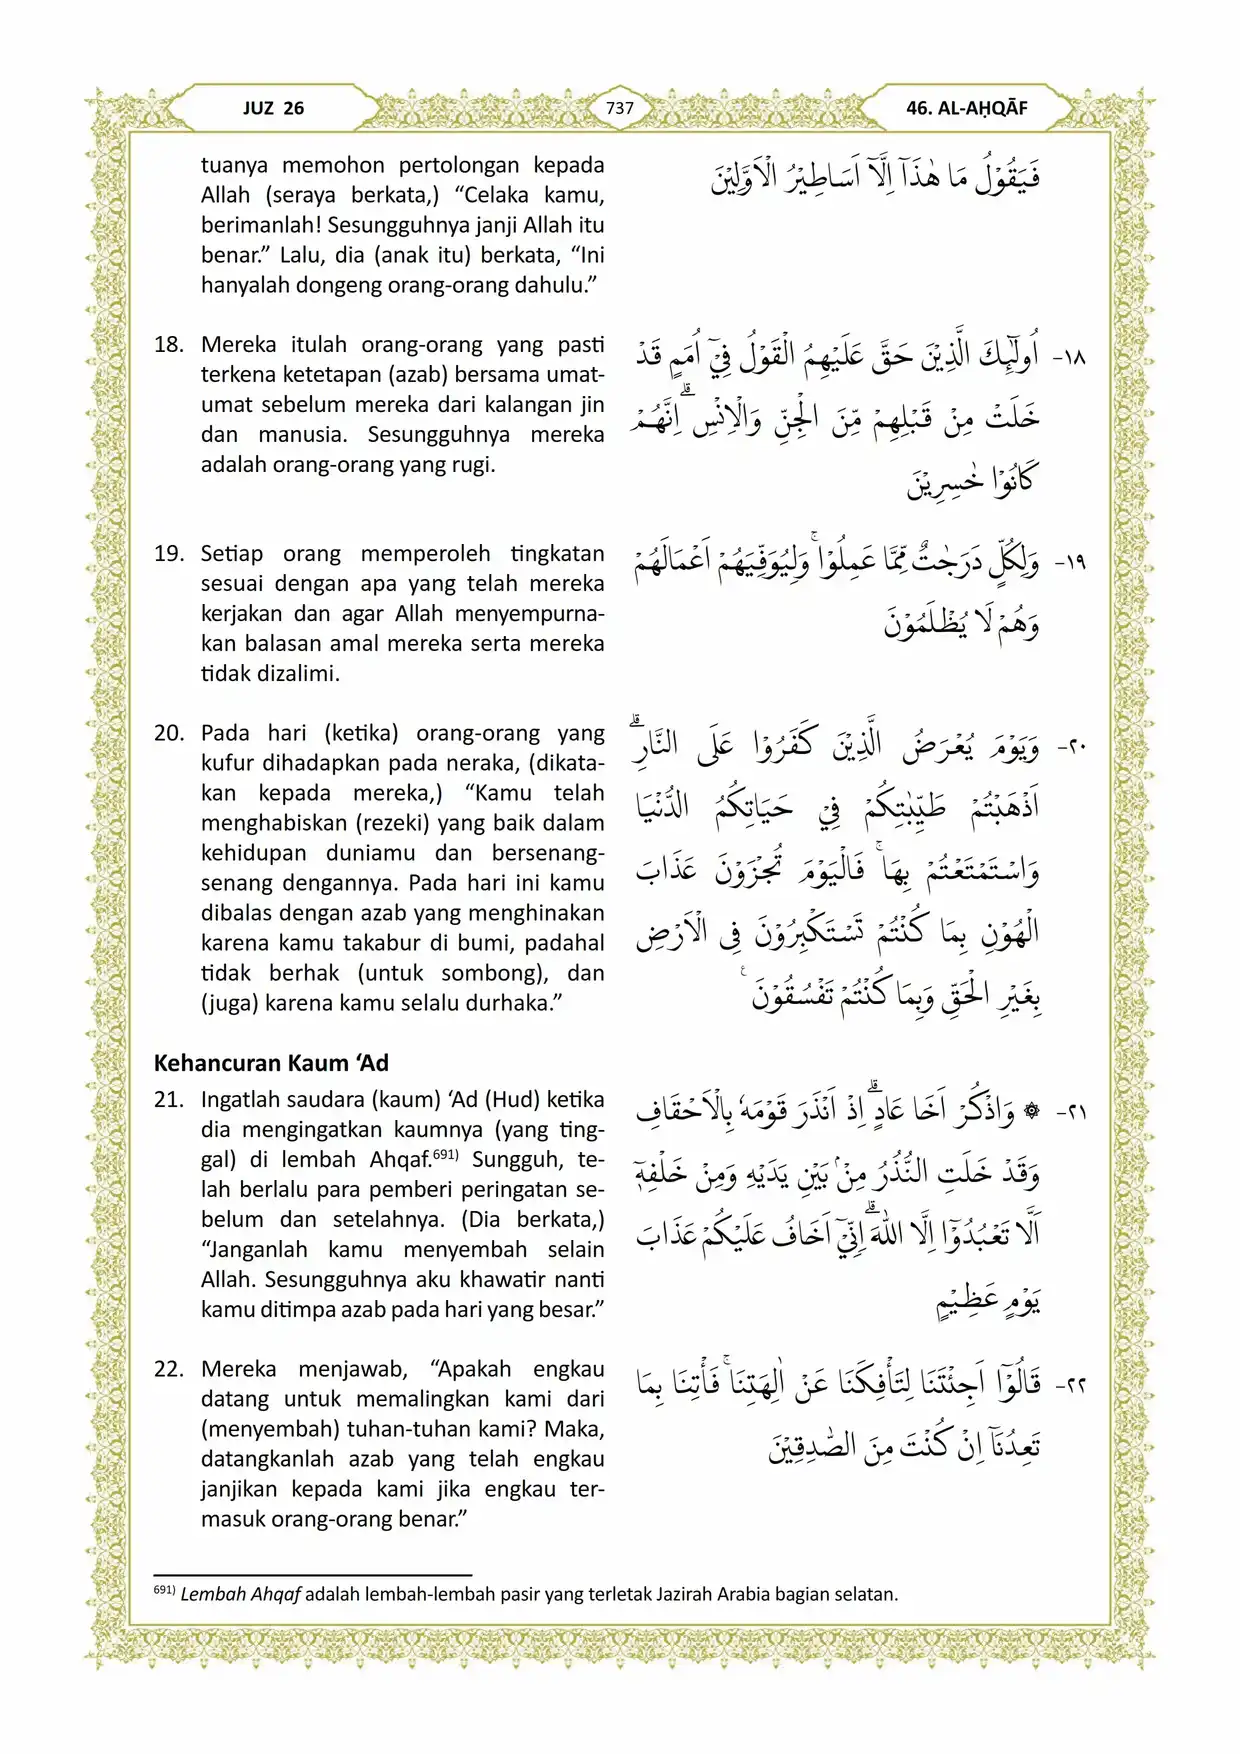 JUZ 26
737
46. AL-AḤQĀF
tuanya memohon pertolongan kepada
Allah (seraya berkata,) “Celaka kamu,
berimanlah! Sesungguhnya janji Allah itu
benar.” Lalu, dia (anak itu) berkata, “Ini
hanyalah dongeng orang-orang dahulu.”
فَيَقُوْلُ مَا هٰذَآ اِلَّآ اَسَاطِيْرُ الْاَوَّلِيْنَ
18. Mereka itulah orang-orang yang pasti
terkena ketetapan (azab) bersama umat-
umat sebelum mereka dari kalangan jin
dan manusia. Sesungguhnya mereka
adalah orang-orang yang rugi.
١٨- اُولٰۤىِٕكَ الَّذِيْنَ حَقَّ عَلَيْهِمُ الْقَوْلُ فِيْٓ اُمَمٍ قَدْ
خَلَتْ مِنْ قَبْلِهِمْ مِّنَ الْجِنِّ وَالْاِنْسِۗ اِنَّهُمْ
كَانُوْا خٰسِرِيْنَ
19. Setiap orang memperoleh tingkatan
sesuai dengan apa yang telah mereka
kerjakan dan agar Allah menyempurna-
kan balasan amal mereka serta mereka
tidak dizalimi.
١٩- وَلِكُلٍّ دَرَجٰتٌ مِّمَّا عَمِلُوْاۚ وَلِيُوَفِّيَهُمْ اَعْمَالَهُمْ
وَهُمْ لَا يُظْلَمُوْنَ
20. Pada hari (ketika) orang-orang yang
kufur dihadapkan pada neraka, (dikata-
kan kepada mereka,) “Kamu telah
menghabiskan (rezeki) yang baik dalam
kehidupan duniamu dan bersenang-
senang dengannya. Pada hari ini kamu
dibalas dengan azab yang menghinakan
karena kamu takabur di bumi, padahal
tidak berhak (untuk sombong), dan
(juga) karena kamu selalu durhaka.”
٢٠- وَيَوْمَ يُعْرَضُ الَّذِيْنَ كَفَرُوْا عَلَى النَّارِۗ
اَذْهَبْتُمْ طَيِّبٰتِكُمْ فِيْ حَيَاتِكُمُ الدُّنْيَا
وَاسْتَمْتَعْتُمْ بِهَاۚ فَالْيَوْمَ تُجْزَوْنَ عَذَابَ
الْهُوْنِ بِمَا كُنْتُمْ تَسْتَكْبِرُوْنَ فِى الْاَرْضِ
بِغَيْرِ الْحَقِّ وَبِمَا كُنْتُمْ تَفْسُقُوْنَ ࣖ
Kehancuran Kaum ‘Ad
21. Ingatlah saudara (kaum) ‘Ad (Hud) ketika
dia mengingatkan kaumnya (yang ting-
gal) di lembah Ahqaf.691) Sungguh, te-
lah berlalu para pemberi peringatan se-
belum dan setelahnya. (Dia berkata,)
“Janganlah kamu menyembah selain
Allah. Sesungguhnya aku khawatir nanti
kamu ditimpa azab pada hari yang besar.”
٢١- ۞ وَاذْكُرْ اَخَا عَادٍۗ اِذْ اَنْذَرَ قَوْمَهٗ بِالْاَحْقَافِ
وَقَدْ خَلَتِ النُّذُرُ مِنْۢ بَيْنِ يَدَيْهِ وَمِنْ خَلْفِهٖٓ
اَلَّا تَعْبُدُوْٓا اِلَّا اللّٰهَ ۗاِنِّيْٓ اَخَافُ عَلَيْكُمْ عَذَابَ
يَوْمٍ عَظِيْمٍ
22. Mereka menjawab, “Apakah engkau
datang untuk memalingkan kami dari
(menyembah) tuhan-tuhan kami? Maka,
datangkanlah azab yang telah engkau
janjikan kepada kami jika engkau ter-
masuk orang-orang benar.”
٢٢- قَالُوْٓا اَجِئْتَنَا لِتَأْفِكَنَا عَنْ اٰلِهَتِنَاۚ فَأْتِنَا بِمَا
تَعِدُنَآ اِنْ كُنْتَ مِنَ الصّٰدِقِيْنَ
691) Lembah Ahqaf adalah lembah-lembah pasir yang terletak Jazirah Arabia bagian selatan.